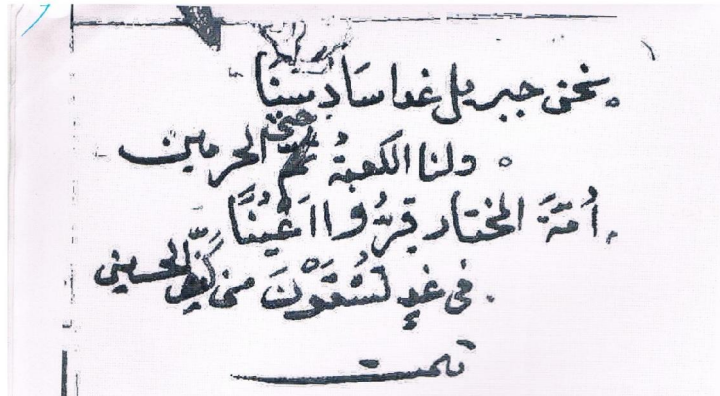 نحن جبريل غدا سَادِسُنَا
ولنا الكعبةُ ثمّ الحرمين
أُمّةَ المختار قِرُّوا اَعْيُنًا
في غدٍ تُسْقَوْنَ من كفِّ الحسين
تمت